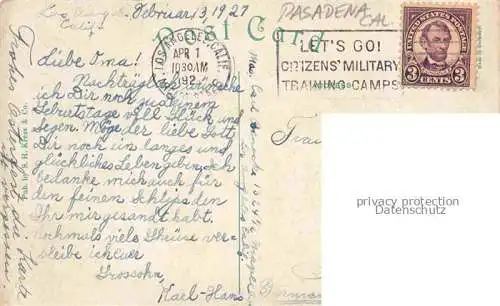 Los Angeles, Februar 13, 1927
Calif.
PASADENA
CAL.
Post Card
LOS ANGELES, CALIF.
APR 1
10 30 AM
192
LET'S GO!
CITIZENS' MILITARY
TRAINING CAMPS
UNITED STATES POSTAGE
LINCOLN
3 CENTS 3
Liebe Oma!
Nachträglich wünsche
ich Dir noch zu deinem
Geburtstage viel Glück und
Segen. Möge der liebe Gott
Dir noch ein langes und
glückliches Leben geben. Ich
bedanke mich auch für
den feinen Schlips den
Ihr mir gesandt habt.
Nochmals viele Grüsse ver-
bleibe ich euer
Grossohn,
Karl-Hans
Pub. by S. H. Kress & Co.
die Karte
vergessen.
Los Angeles Calif.
Frau
German
privacy protection
Datenschutz